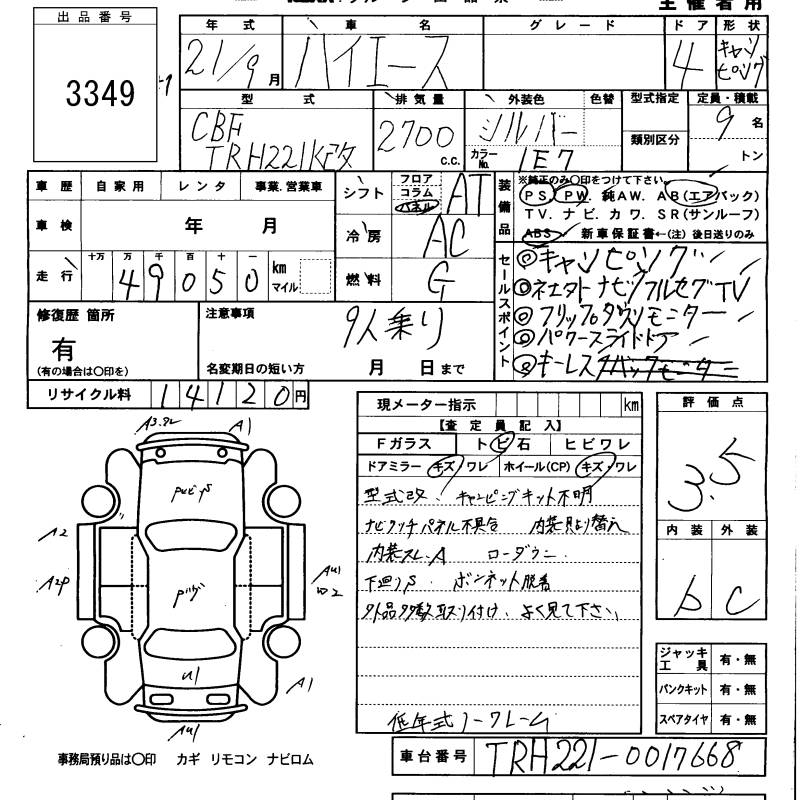 主催者用
出品番号
3349
年式 車名 グレード ドア 形状
21/9月 ハイエース 4 キャンピング
型式 排気量 外装色 色替 型式指定 定員・積載
CBF 2700 c.c. シルバー 類別区分 9名
TRH221K改 カラーNo. 1E7 トン
車歴 自家用 レンタ 事業.営業車 シフト フロア コラム パネル AT
装備品 ※純正のみ○印をつけて下さい。
PS. PW. 純AW. AB(エアバック)
TV. ナビ. カワ. SR(サンルーフ)
ABS 新車保証書←(注) 後日送りのみ
車検 年 月 冷房 AC
走行 十万 万 千 百 十 一
49050 km マイル 燃料 G
セールスポイント
◎キャンピング
◎ネエタトナビフルセグTV
◎フリップダウンモニター
◎パワースライドドア
◎キーレス バックモニター
修復歴 箇所 注意事項 9人乗り
有
(有の場合は○印を) 名変期日の短い方 月 日まで
リサイクル料 14120円
現メーター指示 km
【査定員記入】
Fガラス トビ石 ヒビワレ
ドアミラー キズ/ワレ ホイール(CP) キズ・ワレ
型式改、キャンピングキット不明
ナビタッチパネル不具合 内装貝より替え
内装スレ.A ローダウン
下廻りS. ボンネット脱着
外品多数取り付け、よく見て下さい。
低年式ノークレーム
評価点
3.5
内装 外装
b C
ジャッキ工具 有・無
パンクキット 有・無
スペアタイヤ 有・無
A1
A2
A2P
A1
U1
事務局預り品は○印 カギ リモコン ナビロム
車台番号 TRH221-0017668